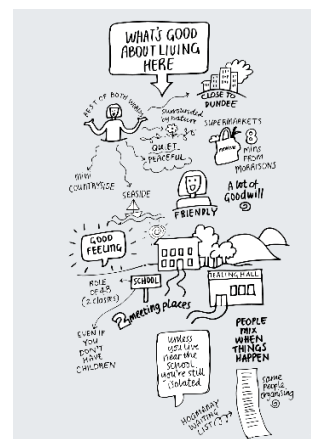 WHAT'S GOOD
ABOUT LIVING
HERE
BEST OF BOTH WORLDS
Surrounded
by nature
CLOSE TO
DUNDEE
QUIET
PEACEFUL
SUPERMARKETS
8
MINS
FROM
MORRISONS
COUNTRYSIDE
SEASIDE
FRIENDLY
A lot of
Goodwill
GOOD
FEELING
ROLE
OF 48
(2 classes)
SCHOOL
TEALING HALL
2 meeting places
EVEN IF
YOU
DON'T
HAVE
CHILDREN
Unless
you live
near the
school
you're still
isolated
PEOPLE
MIX
WHEN
THINGS
HAPPEN
same
people
organising
HOGMANAY
WAITING
LIST